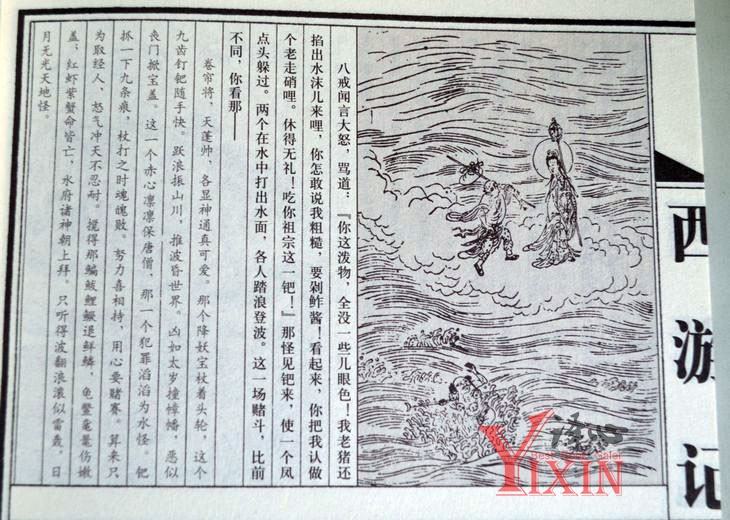 西游记
八戒闻言大怒，骂道：『你这泼物，全没一些儿眼色！我老猪还
掐出水沫儿来哩，你怎敢说我粗糙，要剁鲊酱！看起来，你把我认做
个老走硝哩。休得无礼！吃你祖宗这一钯！』那怪见钯来，使一个凤
点头躲过。两个在水中打出水面，各人踏浪登波。这一场赌斗，比前
不同，你看那——
卷帘将，天蓬帅，各显神通真可爱。那个降妖宝杖着头轮，这个
九齿钉钯随手快。跃浪振山川，推波昏世界。凶如太岁撞幢幡，恶似
丧门掀宝盖。这一个赤心凛凛保唐僧，那一个犯罪滔滔为水怪。钯
抓一下九条痕，杖打之时魂魄败。努力喜相持，用心要赌赛。算来只
为取经人，怒气冲天不忍耐。搅得那鳊鲅鲤鳜退鲜鳞，龟鳖鼋鼍伤嫩
盖。红虾紫蟹命皆亡，水府诸神朝上拜。只听得波翻浪滚似雷轰，日
月无光天地怪。
YIXIN